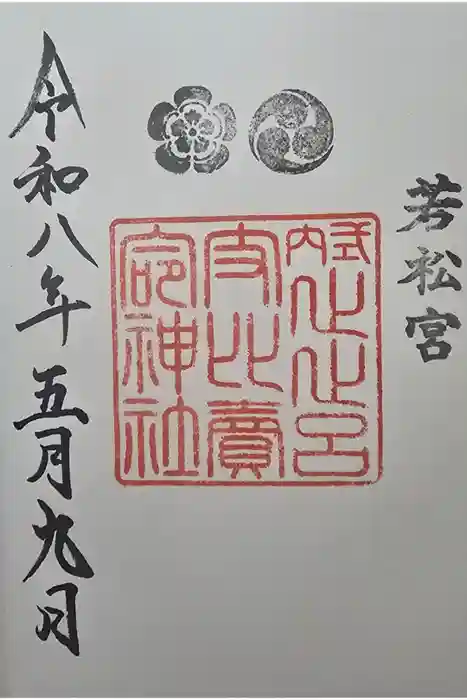 若松宮
式内止止呂
支比賣
命神社
令和八年五月九日